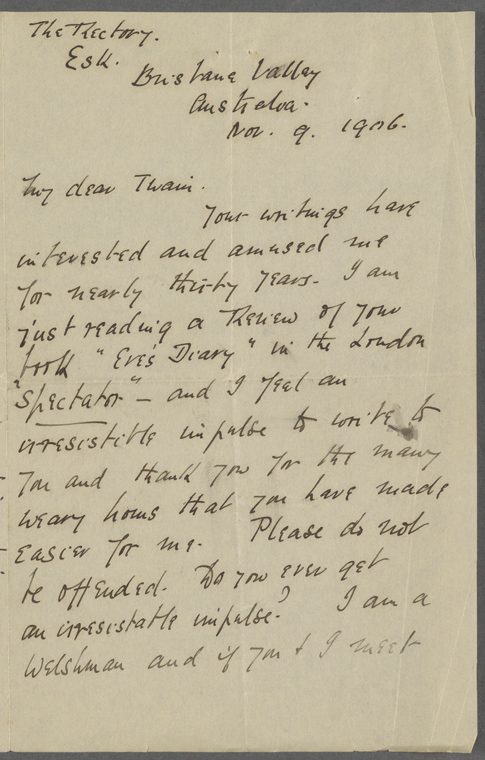 The Rectory.
Esk.
Brisbane Valley
Australia.
Nov. 9. 1906.
My dear Twain.
Your writings have
interested and amused me
for nearly thirty years. I am
just reading a Review of your
book "Eve's Diary" in the London
"Spectator" - and I feel an
irresistible impulse to write to
you and thank you for the many
weary hours that you have made
easier for me. Please do not
be offended. Do you ever get
an irresistable impulse? I am a
Welshman and if you & I meet